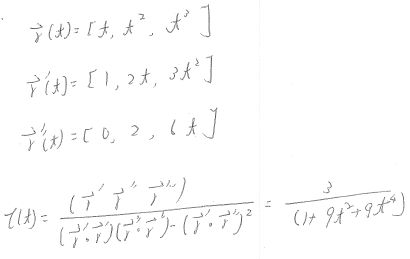 r⃗(t)=[t, t², t³]
r⃗'(t)=[1, 2t, 3t²]
r⃗''(t)=[0, 2, 6t]
τ(t)= (r⃗' r⃗'' r⃗''') / (r⃗'·r⃗')(r⃗''·r⃗'')-(r⃗'·r⃗'')² = 3 / (1+9t²+9t⁴)